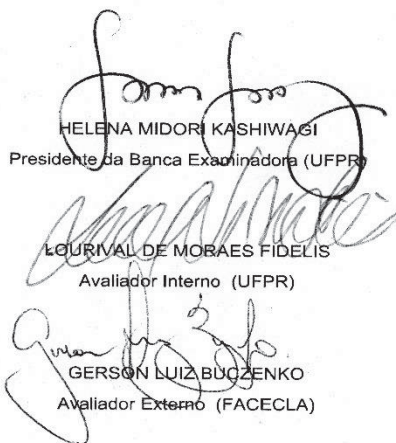 HELENA MIDORI KASHIWAGI
Presidente da Banca Examinadora (UFPR)
LOURIVAL DE MORAES FIDELIS
Avaliador Interno (UFPR)
GERSON LUIZ BUCZENKO
Avaliador Externo (FACECLA)